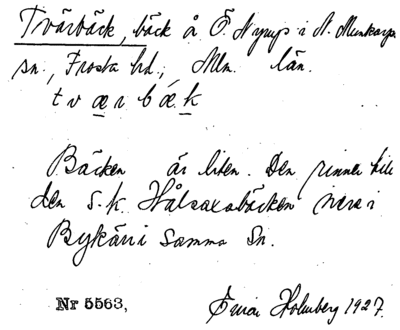 Tvärbäck, bäck å Ö. Nyrup i N. Munkarps
sn., Frosta hd., Mlm. län.
t v æ r b æ k
Bäcken är liten. Den rinner till
den s.k. Hålsaxabäcken nere i
Bykärr i samma sn.
Nr 5563,
Ernst Holmberg 1927.